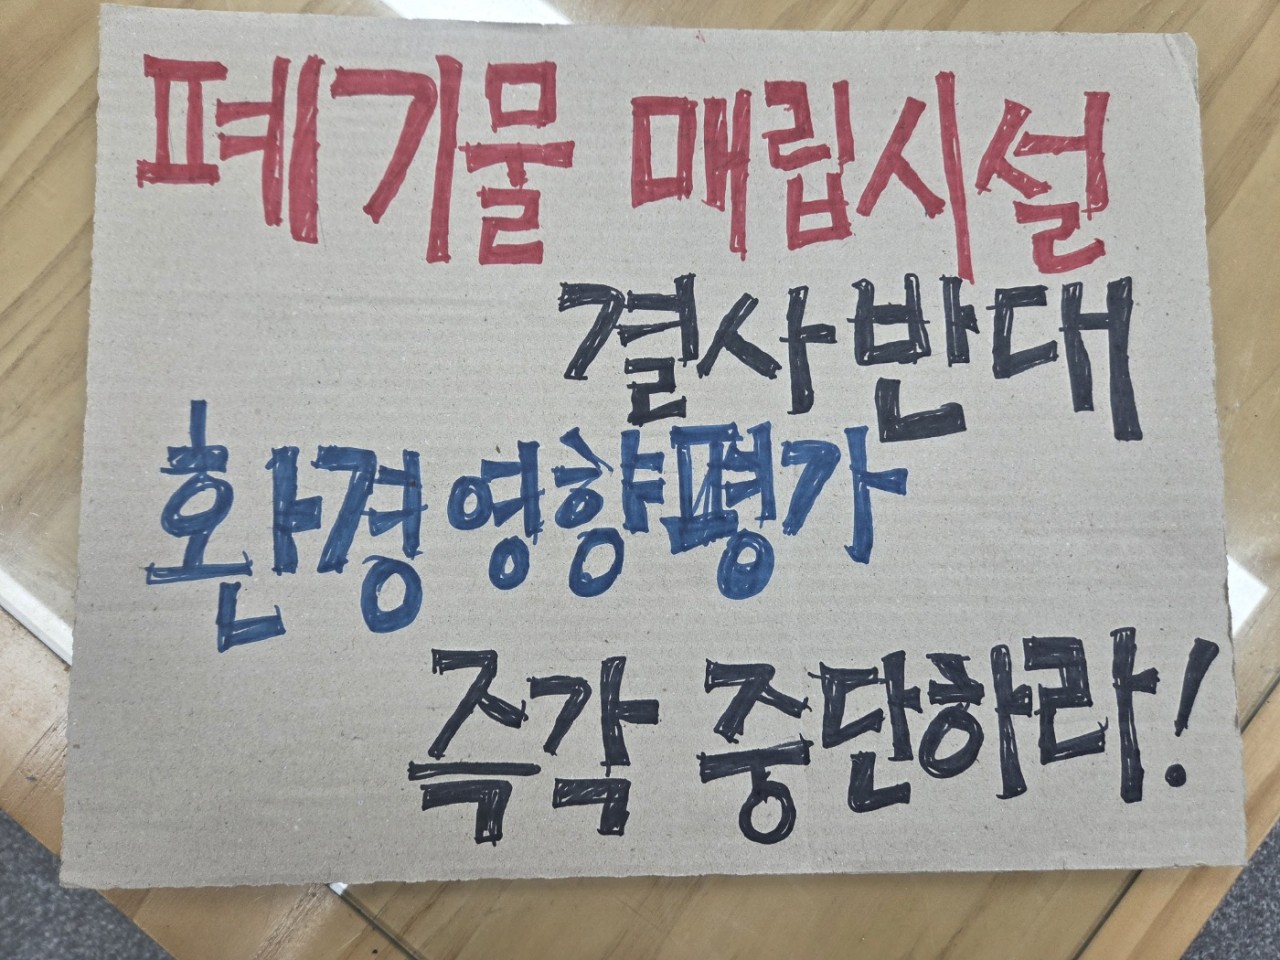 폐기물 매립시설
결사반대
환경영향평가
즉각 중단하라!